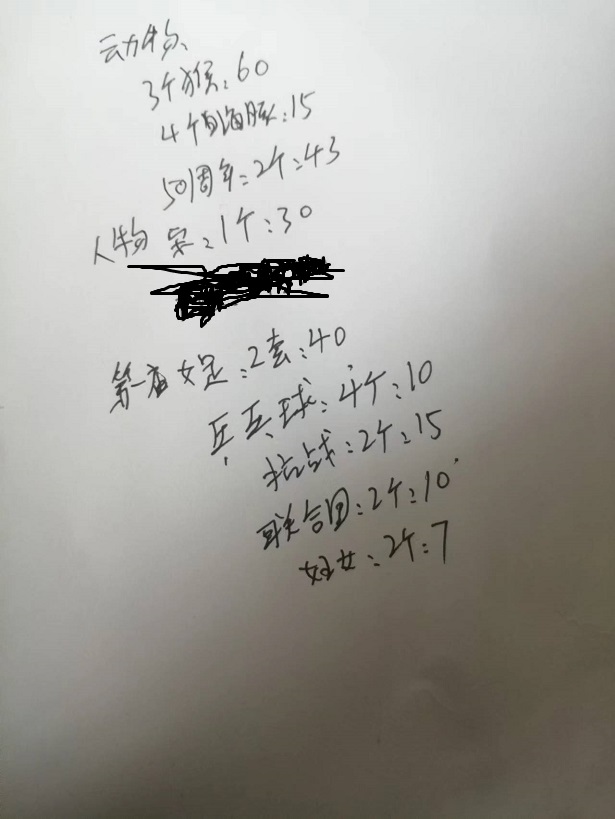 动物:
3个猴:60
4个白海豚:15
50周年:2个:43
人物 宋:1个:30
第一届女足:2套:40
乒乓球:4个:10
抗战:2个:15
联合国:2个:10
妇女:2个:7